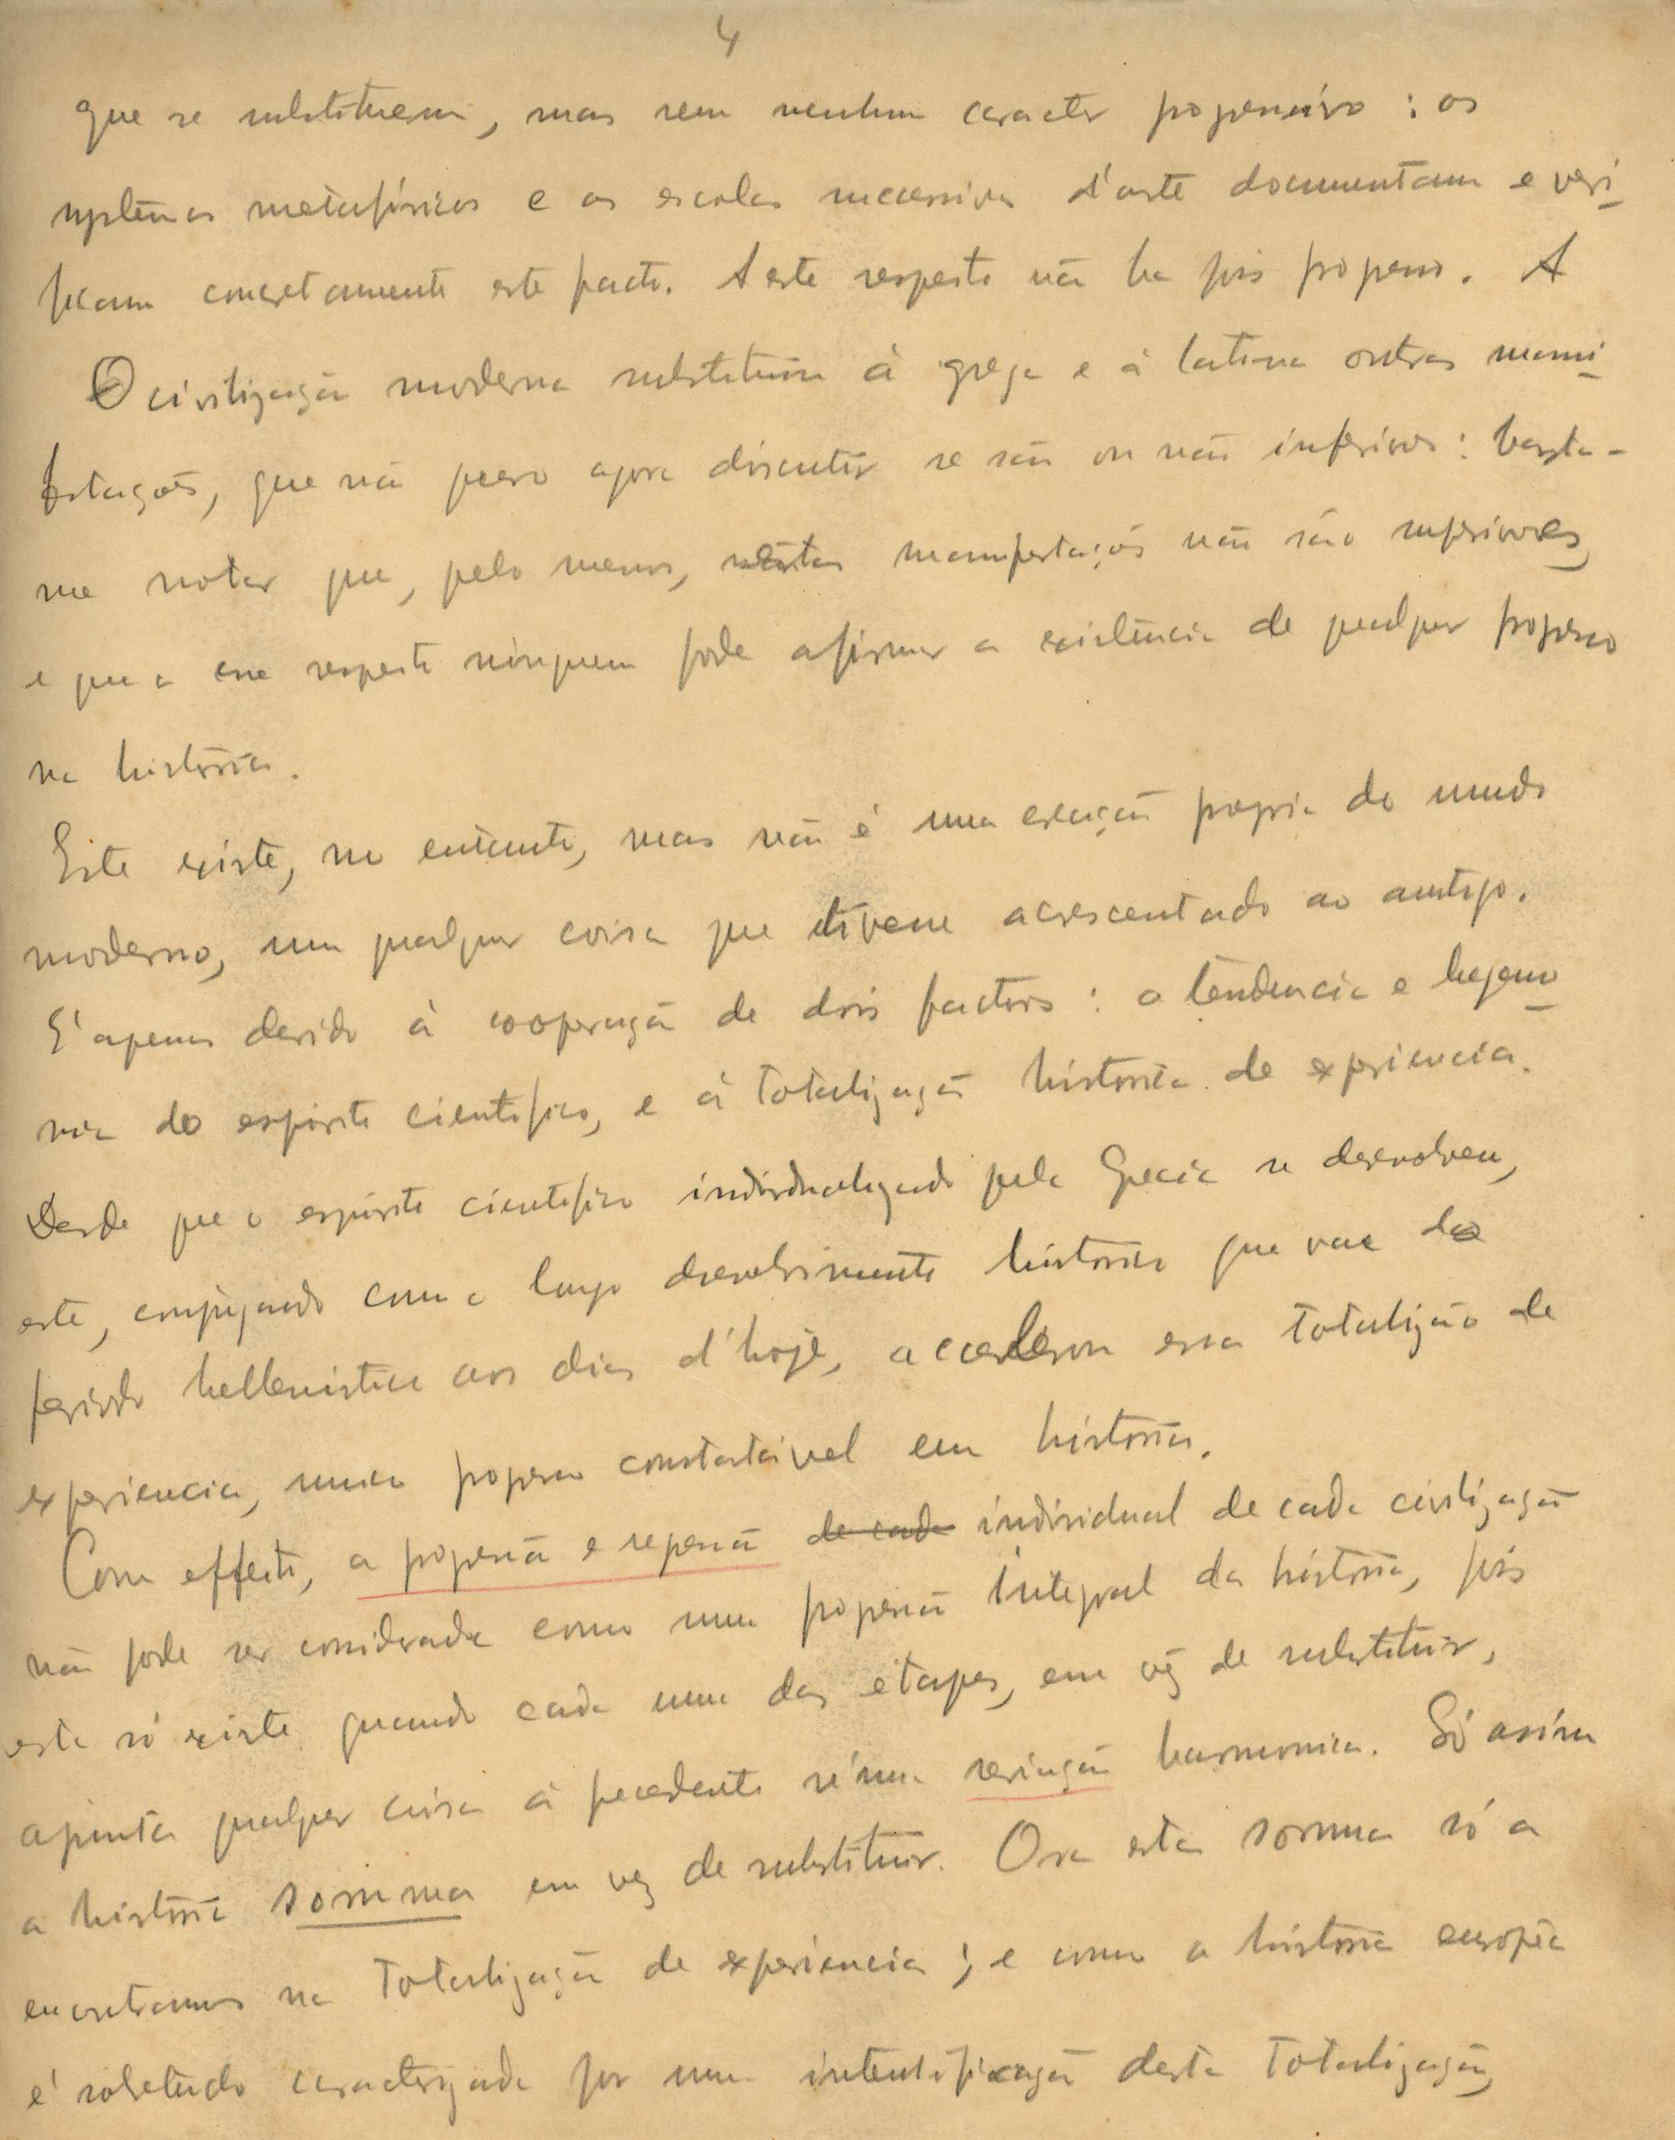 4
que se substituem, mas sem nenhum caracter progressivo : os
systemas metafísicos e as escolas successivas d'arte documentam e veri-
ficam concretamente este facto. A este respeito não ha pois progresso. A
civilização moderna substituiu á grega e á latina outras mani-
festações, que não quero agora discutir se são ou não inferiores: basta-
me notar que, pelo menos, nestas manifestações não são superiores,
e que a esse respeito ninguem pode afirmar a existência de qualquer progresso
na história.
Este existe, no entanto, mas não é uma creação propria do mundo
moderno, um qualquer coisa que tivesse acrescentado ao antigo.
É apenas devido á cooperação de dois factores : a tendencia e hegemo-
nia do espirito cientifico, e á totalização historica de experiencia.
Desde que o espirito cientifico individualizado pela Grecia se desenvolveu,
este, conjugado com o largo desenvolvimento historico que vae do
periodo hellenistico aos dias d'hoje, accelerou essa totalização de
experiencia, unico progresso constatável em história.
Com effeito, a progressão e regressão de cada individual de cada civilização
não pode ser considerada como uma progressão integral da história, pois
esta só existe quando cada uma das etapes, em vez de substituir,
ajunta qualquer coisa á precedente n'uma seriação harmonica. Só assim
a história somma em vez de substituir. Ora esta somma só a
encontramos na totalização de experiencia ; e como a história europêa
é sobretudo caracterizada por uma intensificação desta totalização,